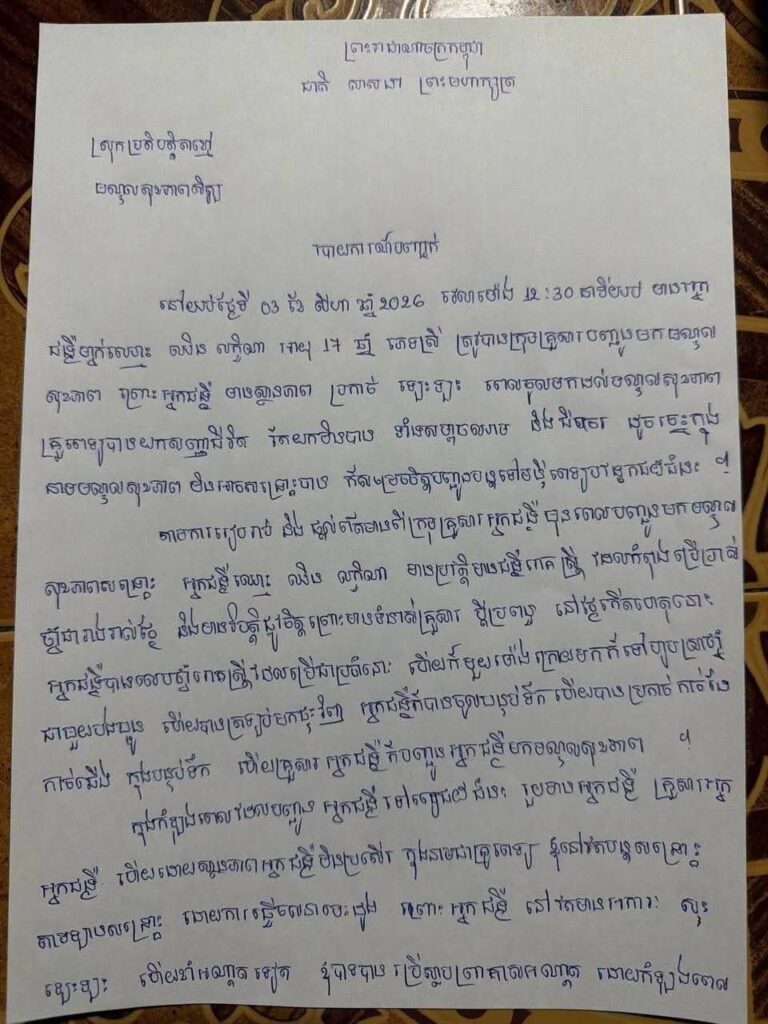 ព្រះរាជាណាចក្រកម្ពុជា
ជាតិ សាសនា ព្រះមហាក្សត្រ
ស្រុកប្រតិបត្តិតាខ្មៅ
មណ្ឌលសុខភាព
របាយការណ៍បញ្ជាក់
នៅយប់ថ្ងៃទី 03 ខែ សីហា ឆ្នាំ 2026 វេលាម៉ោង 12:30 នាទីយប់ មានអ្នក
ជំងឺម្នាក់ឈ្មោះ ឈិន លក្ខិណា អាយុ 17 ឆ្នាំ ភេទស្រី ត្រូវបានក្រុមគ្រួសារបញ្ជូនមកមណ្ឌល
សុខភាព ព្រោះអ្នកជំងឺ មានស្ថានភាព ប្រកាច់ ខ្សេះខ្សះ ពេលចូលមកដល់មណ្ឌលសុខភាព
គ្រូពេទ្យបានយកសញ្ញាជីវិត តែយកមិនបាន ទាំងសម្ពាធឈាម និងជីពចរ ដូចច្នេះក្នុង
នាមមណ្ឌលសុខភាព មិនអាចសង្គ្រោះបាន ក៏សម្រេចចិត្តបញ្ជូនបន្តទៅមន្ទីរពេទ្យ ជ័យជំនះ ។
តាមការរៀបរាប់ និង ផ្តល់ព័ត៌មានពីក្រុមគ្រួសារអ្នកជំងឺ មុនពេលបញ្ជូនមកមណ្ឌល
សុខភាពសង្គ្រោះ អ្នកជំងឺឈ្មោះ ឈិន លក្ខិណា មានប្រវត្តិមានជំងឺរោគស្ត្រី ដែលកំពុងប្រើប្រាស់
ថ្នាំជារាងរាល់ថ្ងៃ និងមានវិបត្តិផ្លូវចិត្តព្រោះមានទំនាស់គ្រួសារ ប្តីប្រពន្ធ នៅថ្ងៃកើតហេតុនោះ
អ្នកជំងឺបានលេបថ្នាំរោគស្ត្រីដែលប្រើជាប្រចាំនោះ ហើយក៏មួយម៉ោងក្រោយមកក៏ទៅហូបស្រា
ជាមួយបងប្អូន ហើយបានត្រឡប់មកផ្ទះវិញ អ្នកជំងឺក៏បានចូលបន្ទប់ទឹក ហើយបានប្រកាច់កាច់ដៃ
កាច់ជើង ក្នុងបន្ទប់ទឹក ហើយគ្រួសារ អ្នកជំងឺ ក៏បញ្ជូន អ្នកជំងឺមកមណ្ឌលសុខភាព ។
ក្នុងកំឡុងពេលដែលបញ្ជូន អ្នកជំងឺទៅពេទ្យជ័យជំនះ រួមមានអ្នកជំងឺ គ្រួសារអ្នក
អ្នកជំងឺ ហើយដោយស្ថានភាពអ្នកជំងឺមិនប្រសើរ ក្នុងនាមជាគ្រូពេទ្យ ខ្ញុំនៅតែបន្តសង្គ្រោះ
តាមឡានសង្គ្រោះ ដោយការធ្វើចលនាបេះដូង ព្រោះអ្នកជំងឺ នៅតែមានអាការៈ
ខ្សេះខ្សះ ហើយខាំអណ្តាត ទៀត ខ្ញុំបាទបាន ប្រើស្លាបព្រាគាស់អណ្តាត ដោយកំឡុងពេល